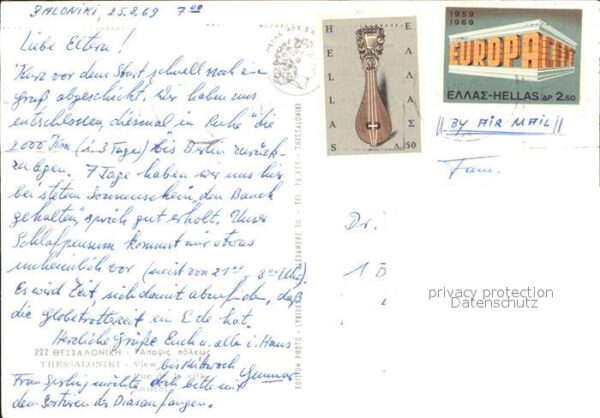 SALONIKI, 25.8.69 7⁰⁰
Liebe Eltern!
Kurz vor dem Start schnell noch ein
Gruß abgeschickt. Wir haben uns
entschlossen, diesmal in Ruhe "die
2000 Km (i. 3 Tagen) bis Berlin zurück-
zulegen. 7 Tage haben wir uns hier
bei stetem Sonnenschein, "den Bauch
gehalten", sprich gut erholt. Unser
Schlafpensum kommt mir etwas
unheimlich vor (meist von 21⁰⁰ - 8⁰⁰ Uhr).
Es wird Zeit sich damit abzufinden, daß
die Globetrotterzeit ein Ende hat.
Herzliche Grüße Euch u. alle i. Haus
bis Mittwoch
Frau Gerling möchte doch bitte mit
dem Sortieren der Dias anfangen.
222 ΘΕΣΣΑΛΟΝΙΚΗ - Άποψις πόλεως
THESSALONIKI - View
EDITION PHOTO
THESSALONIKI
HELLAS
ΕΛΛΑΣ
Λ.50
1959
1969
EUROPA CEPT
ΕΛΛΑΣ-HELLAS ΔΡ. 2.50
BY AIR MAIL
Fam.
Dr.
1 B
privacy protection
Datenschutz